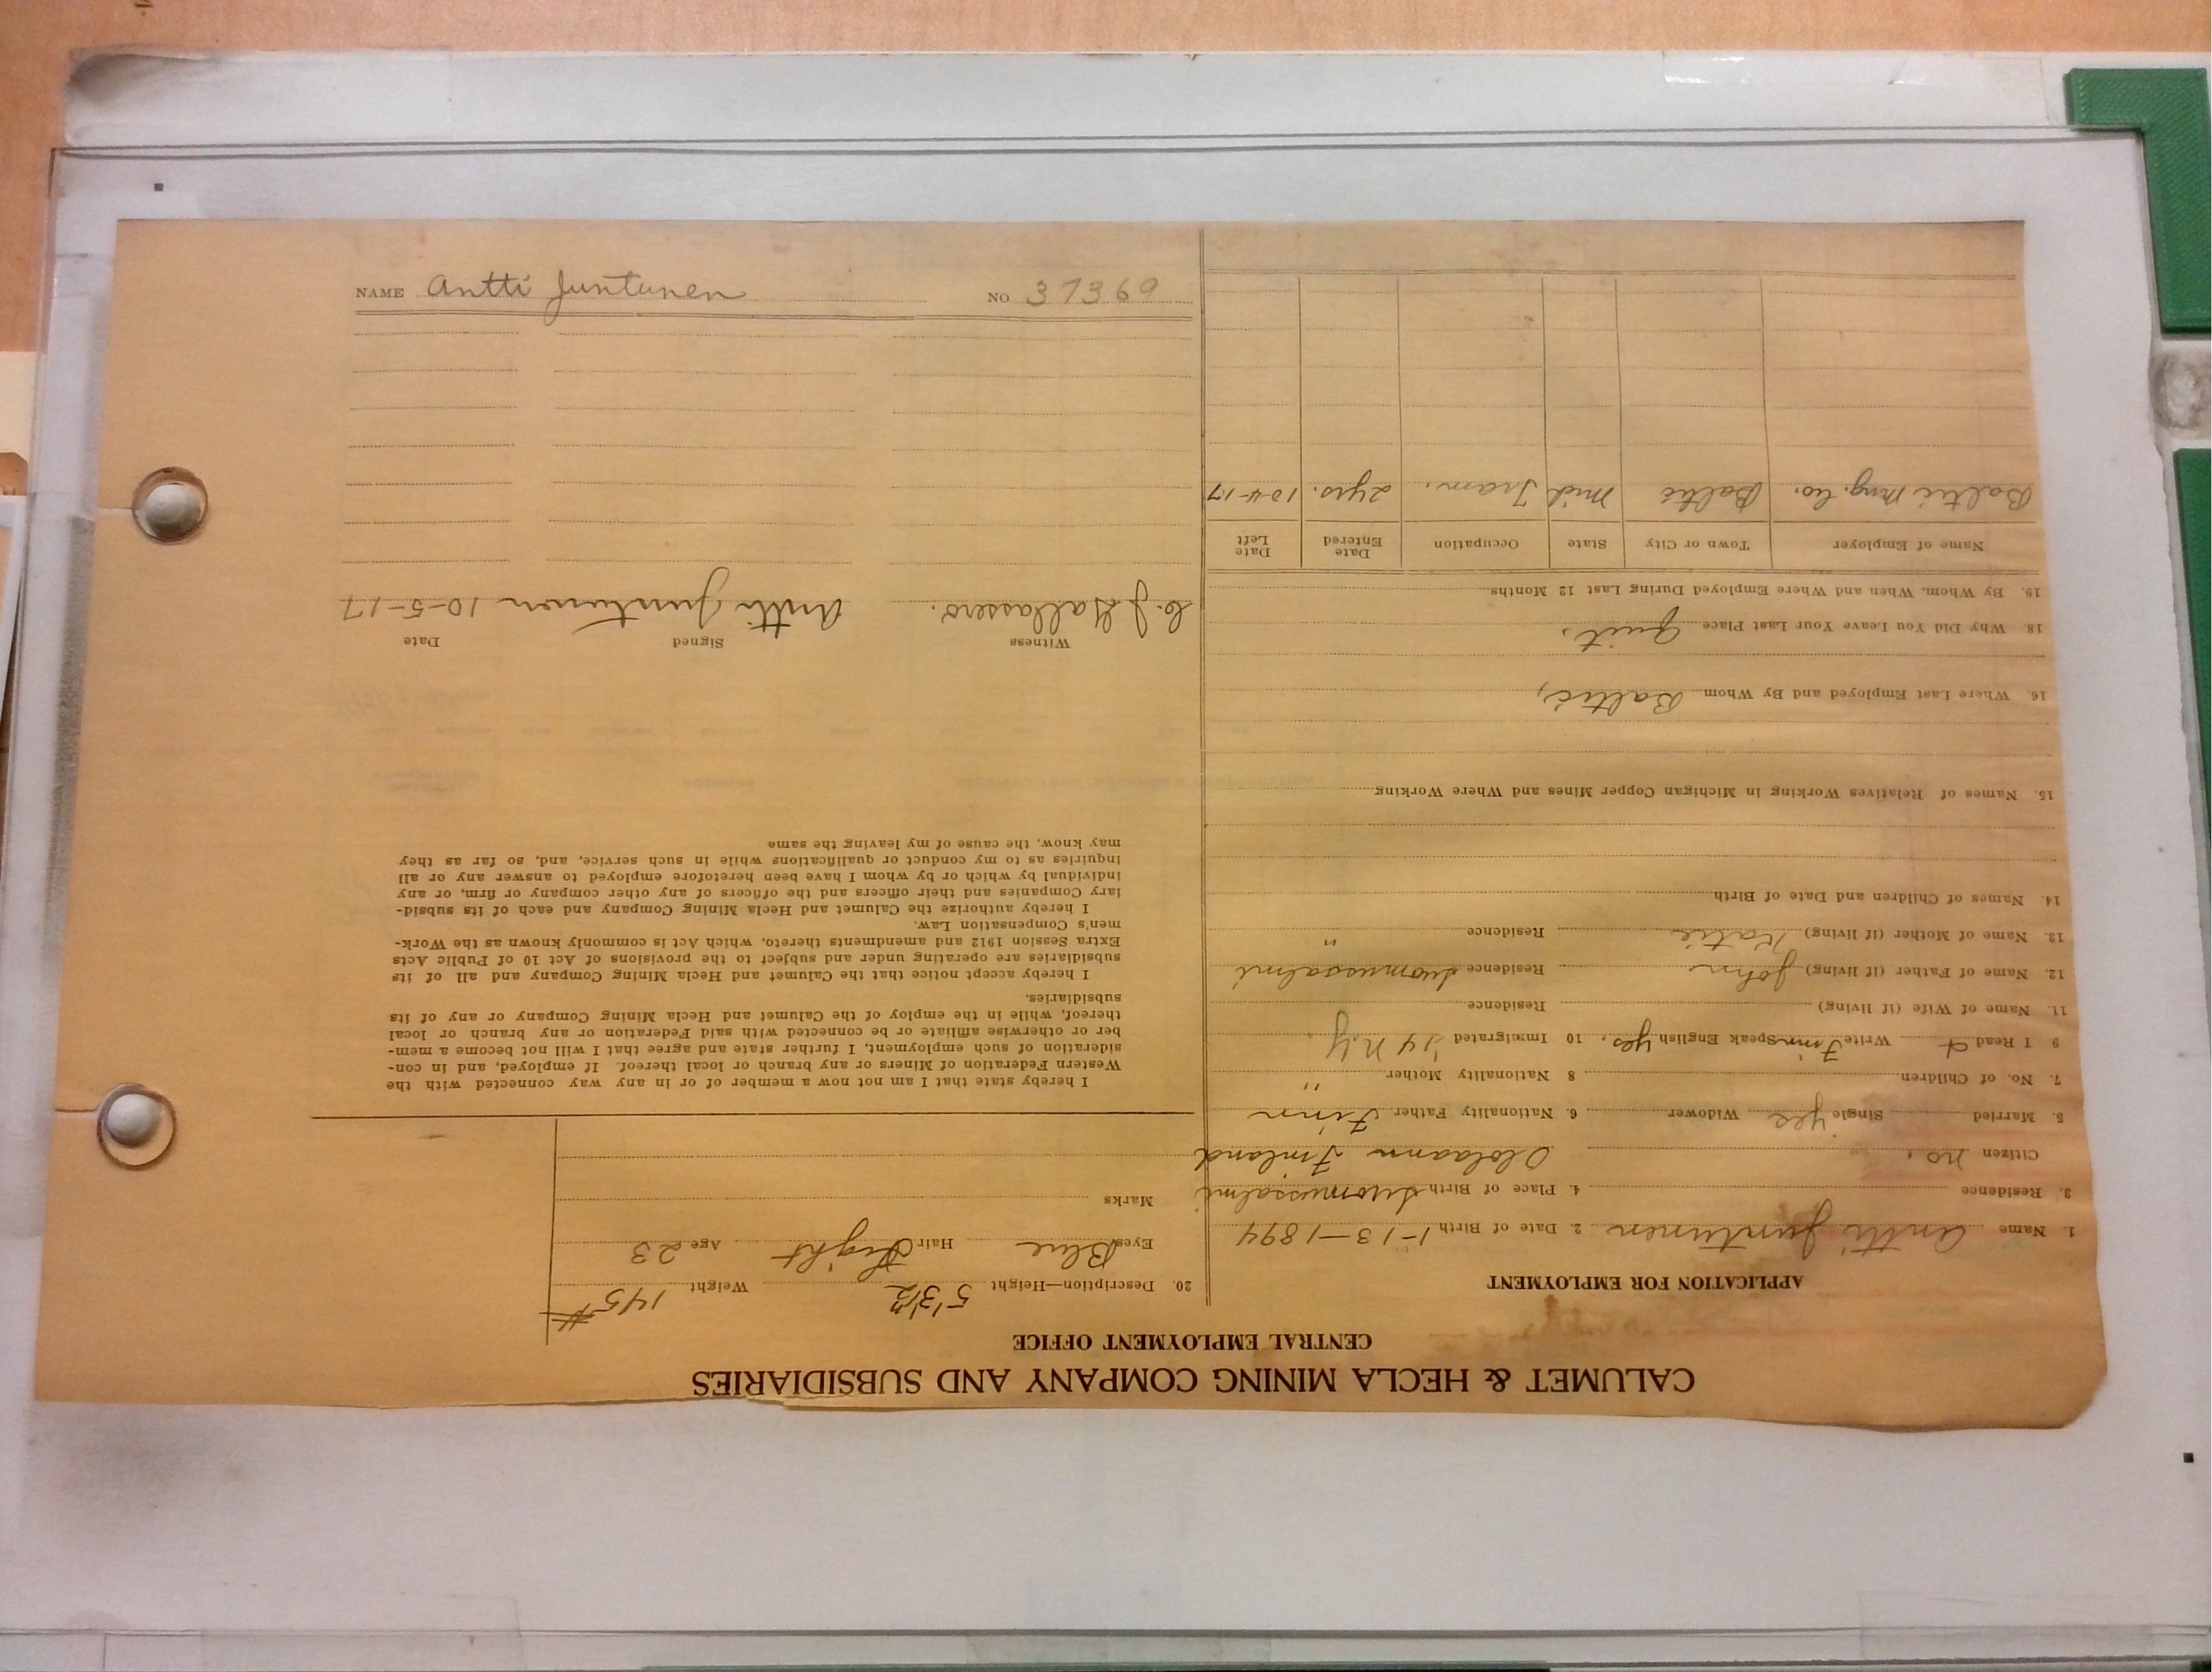 CALUMET & HECLA MINING COMPANY AND SUBSIDIARIES
CENTRAL EMPLOYMENT OFFICE
APPLICATION FOR EMPLOYMENT
1. Name Antti Juntunen 2. Date of Birth 1-13-1894
3. Residence 4. Place of Birth Suomussalmi
Citizen no. Finland
5. Married Single yes Widower 6. Nationality Father Finn
7. No. of Children 8 Nationality Mother "
9 I Read & Write Finn Speak English yes. 10 Immigrated '14 N.Y.
11. Name of Wife (if living) Residence
12. Name of Father (if living) John Residence Suomussalmi
12. Name of Mother (if living) Katie Residence "
14. Names of Children and Date of Birth
15. Names of Relatives Working in Michigan Copper Mines and Where Working
16. Where Last Employed and By Whom Baltic,
18. Why Did You Leave Your Last Place Quit.
19. By Whom, When and Where Employed During Last 12 Months
Name of Employer Town or City State Occupation Date Entered Date Left
Baltic Mng. Co. Baltic Mich Tram. 2 yrs. 10-4-17
20. Description—Height 5' 3 1/2" Weight 145#
Eyes Blue Hair Light Age 23
Marks
I hereby state that I am not now a member of or in any way connected with the
Western Federation of Miners or any branch or local thereof. If employed, and in con-
sideration of such employment, I further state and agree that I will not become a mem-
ber or otherwise affiliate or be connected with said Federation or any branch or local
thereof, while in the employ of the Calumet and Hecla Mining Company or any of its
subsidiaries.
I hereby accept notice that the Calumet and Hecla Mining Company and all of its
subsidiaries are operating under and subject to the provisions of Act 10 of Public Acts
Extra Session 1912 and amendments thereto, which Act is commonly known as the Work-
men's Compensation Law.
I hereby authorize the Calumet and Hecla Mining Company and each of its subsid-
iary Companies and their officers and the officers of any other company or firm, or any
individual by which or by whom I have been heretofore employed to answer any or all
inquiries as to my conduct or qualifications while in such service, and, so far as they
may know, the cause of my leaving the same
Witness Signed Date
C. J. Antti Juntunen 10-5-17
NAME Antti Juntunen NO 37369